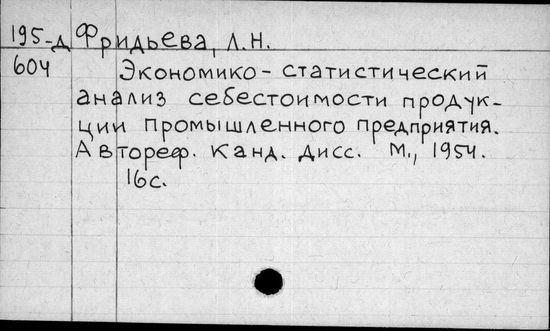 195-д Фридьева, Л.Н.
604 Экономико-статистический
анализ себестоимости продук-
ции промышленного предприятия.
Автореф. канд. дисс. М., 1954.
16с.